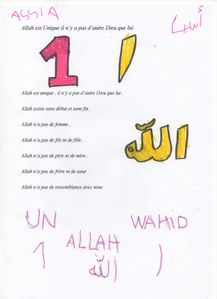 ASSIA أسيا
Allah est Unique il n'y a pas d'autre Dieu que lui
1 ١
Allah est unique , il n'y a pas d'autre Dieu que lui .
Allah existe sans début et sans fin .
Allah n'a pas de femme .
الله
Allah n'a pas de fils ni de fille .
Allah n'a pas de père ni de mère .
Allah n'a pas de frère ni de sœur .
Allah n'a pas de ressemblance avec nous
UN WAHID
ALLAH
1 الله ١